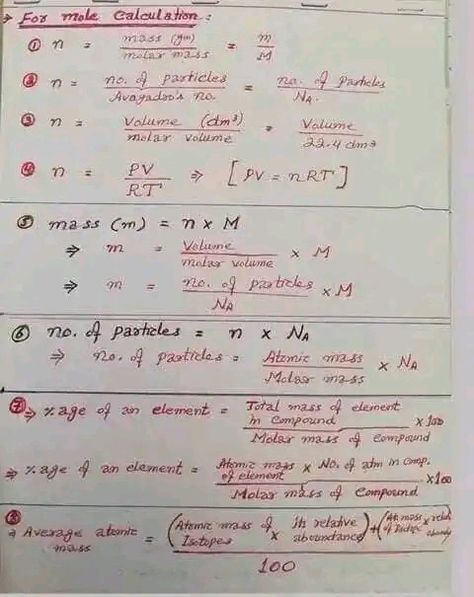 → For mole Calculation :
① n = mass (gm) / molar mass = m / M
② n = no. of particles / Avagadro's no. = no. of particles / NA.
③ n = Volume (dm³) / molar volume = Volume / 22.4 dm³
④ n = PV / RT ⇒ [PV = nRT]
⑤ mass (m) = n × M
⇒ m = Volume / molar volume × M
⇒ m = no. of particles / NA × M
⑥ no. of particles = n × NA
⇒ no. of particles = Atomic mass / Molar mass × NA
⑦ ⇒ %age of an element = Total mass of element in compound / Molar mass of compound × 100
⇒ %age of an element = Atomic mass of element × No. of atm in comp. / Molar mass of compound × 100
⑧ ⇒ Average atomic mass = (Atomic mass of Isotopes × its relative aboundance) + (At. mass of Isotope × relat. abundy) / 100